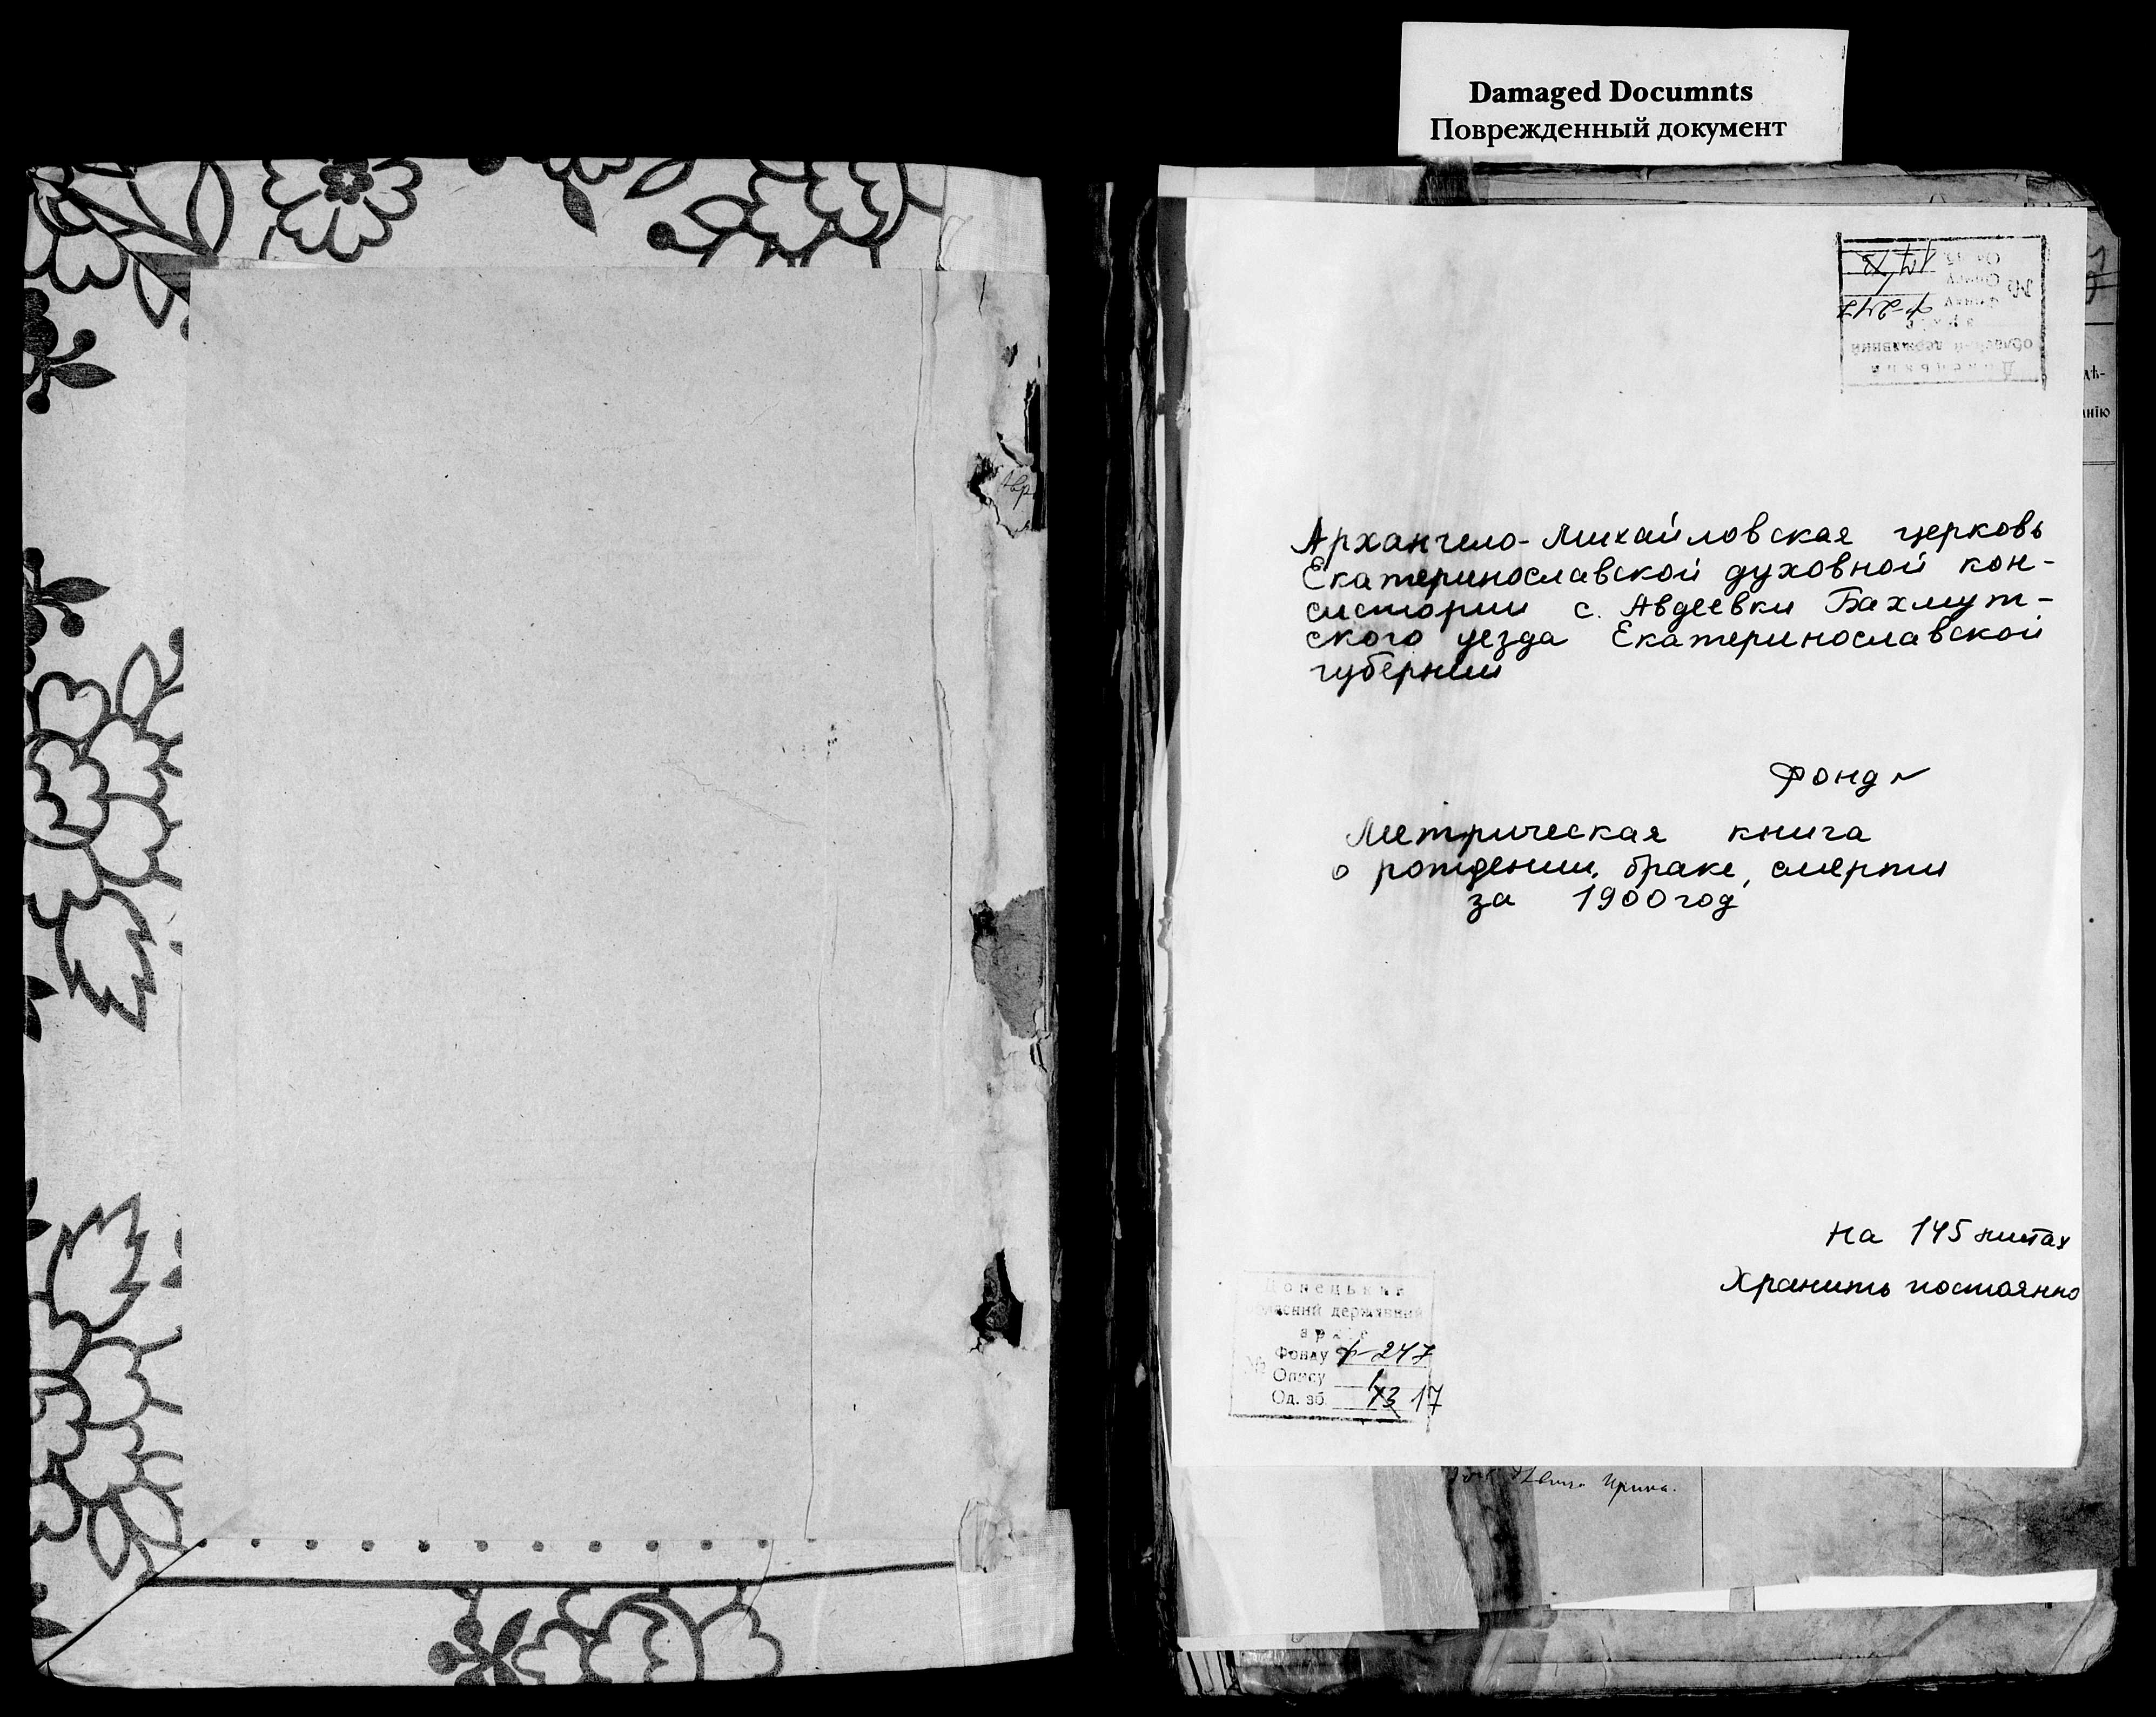 Damaged Documnts
Поврежденный документ
Архангело-Михайловская церковь
Екатеринославской духовной кон-
систории с. Авдеевки Бахмут-
ского уезда Екатеринославской
губернии
Фонд
Метрическая книга
о рождении, браке, смерти
за 1900 год
на 145 листах
Хранить постоянно
Донецький
обласний державний
архів
№ Фонду ф-247
Опису 1
Од. зб. 43 17
Ирина.